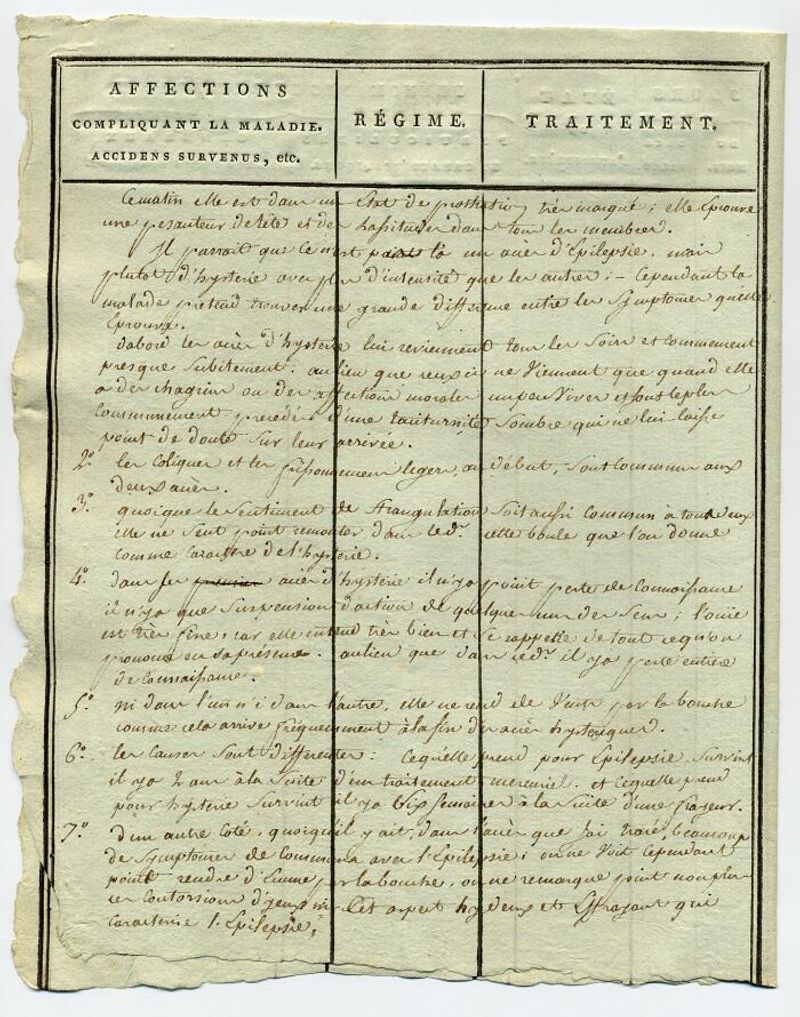 AFFECTIONS
COMPLIQUANT LA MALADIE.
ACCIDENS SURVENUS, etc.
RÉGIME.
TRAITEMENT.
Ce matin elle est dans un Etat de prostration très marqué ; elle Eprouve
une pesanteur de tête et des lassitudes dans tous les membres.
Il parrait que ce n'est point là un accès d'Epilepsie, mais
plutot d'hysterie avec plus d'intensité que les autres ; – Cependant la
malade prétend trouver une grande différence entre les Symptomes qu'elle
Eprouve.
dabord les accès d'hysterie lui reviennent tous les soirs et commencent
presque subitement. au lieu que ceux ci ne Viennent que quand elle
a des chagrins ou des affections morales un peu Vives et sont le plus
communément précédés d'une taciturnité sombre qui ne lui laisse
point de doute sur leur arrivée.
2° les Coliques et les frissonnement legers, au début, sont Communs aux
deux accès.
3° quoique le sentiment de strangulation soit aussi Commun à tout deux
elle ne sent point remonter dans le dr. cette boule que l'on donne
comme caractère de l'hysterie.
4° dans les accès d'hysterie il n'y a point perte de Connaissance
il n'y a que Suspension d'action de quelques uns des Sens ; l'ouïe
est très fine, car elle entend très bien et se rappelle de tout ce qu'on
prononce en sa présence. au lieu que dans le dr. il y a perte entière
de Connaissance.
5° ni dans l'un n'i dans l'autre, elle ne rend de Vents par la bouche
comme cela arrive fréquemment à la fin des accès hysteriques.
6° les Causes sont differentes : Ce qu'elle prend pour Epilepsie survint
il y a 2 ans à la Suite d'un traitement mercuriel. et ce qu'elle prend
pour hysterie Survint il y a Six Semaines à la suite d'une frayeur.
7° d'un autre coté, quoiqu'il y ait, dans l'accès que j'ai tracé, beaucoup
de Symptomes de Communs avec l'Epilepsie ; on ne Voit cependant
point rendre d'Ecume par la bouche, on ne remarque point non plus
ces contorsions d'yeux ni Cet aspect hydeux et Effrayant qui
caracterise l'Epilepsie,